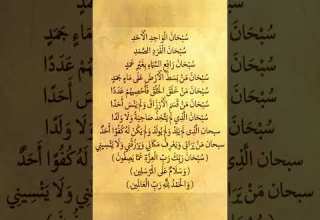 سُبْحَانَ الْوَاحِدِ الْأَحَدِ
سُبْحَانَ الْفَرْدِ الصَّمَدِ
سُبْحَانَ رَافِعِ السَّمَاءِ بِغَيْرِ عَمَدٍ
سُبْحَانَ مَنْ بَسَطَ الْأَرْضَ عَلَى مَاءٍ جَمَدٍ
سُبْحَانَ مَنْ خَلَقَ الْخَلْقَ فَأَحْصَهُمْ عَدَدًا
سُبْحَانَ مَنْ قَسَمَ الْأَرْزَاقَ وَلَمْ يَنْسَ أَحَدًا
سُبْحَانَ الَّذِي لَمْ يَتَّخِذْ صَاحِبَةً وَلَا وَلَدًا
سبحان الَّذِي لَمْ يَلِدْ وَلَمْ يُولَدْ وَلَمْ يَكُنْ لَهُ كُفُوًا أَحَدٌ
سبحان مَنْ يَرَانِي وَيَعْرِفُ مَكَانِي وَيَرْزُقُنِي وَلَا يَنْسِينِي
( سُبْحَانَ رَبِّكَ رَبِّ الْعِزَّةِ عَمَّا يَصِفُونَ )
( وَسَلَامٌ عَلَى الْمُرْسَلِينَ )
( وَالْحَمْدُ لِلَّهِ رَبِّ الْعَالَمِينَ )